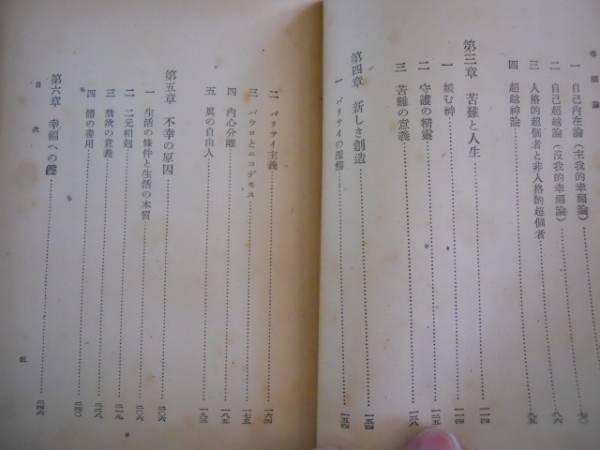 幸福論
一 自己内在論（主我的幸福論） 七〇
二 自己超越論（没我的幸福論） 八六
三 人格的超個者と非人格的超個者 九五
四 超越神論
第三章 苦難と人生 一一四
一 妬む神 一一四
二 守護の精霊 一二五
三 苦難の意義 一三八
第四章 新しき創造 一五四
一 パリサイの 一五四
二 パリサイ主義 一六四
三 パウロとニコデモス 一七五
四 内心分離 一八五
五 真の自由人 一九三
第五章 不幸の原因 二〇六
一 生活の条件と生活の本質 二〇六
二 二元相剋 二一九
三 の意義 二二八
四 の善用 二四〇
第六章 幸福への 二四六
目次